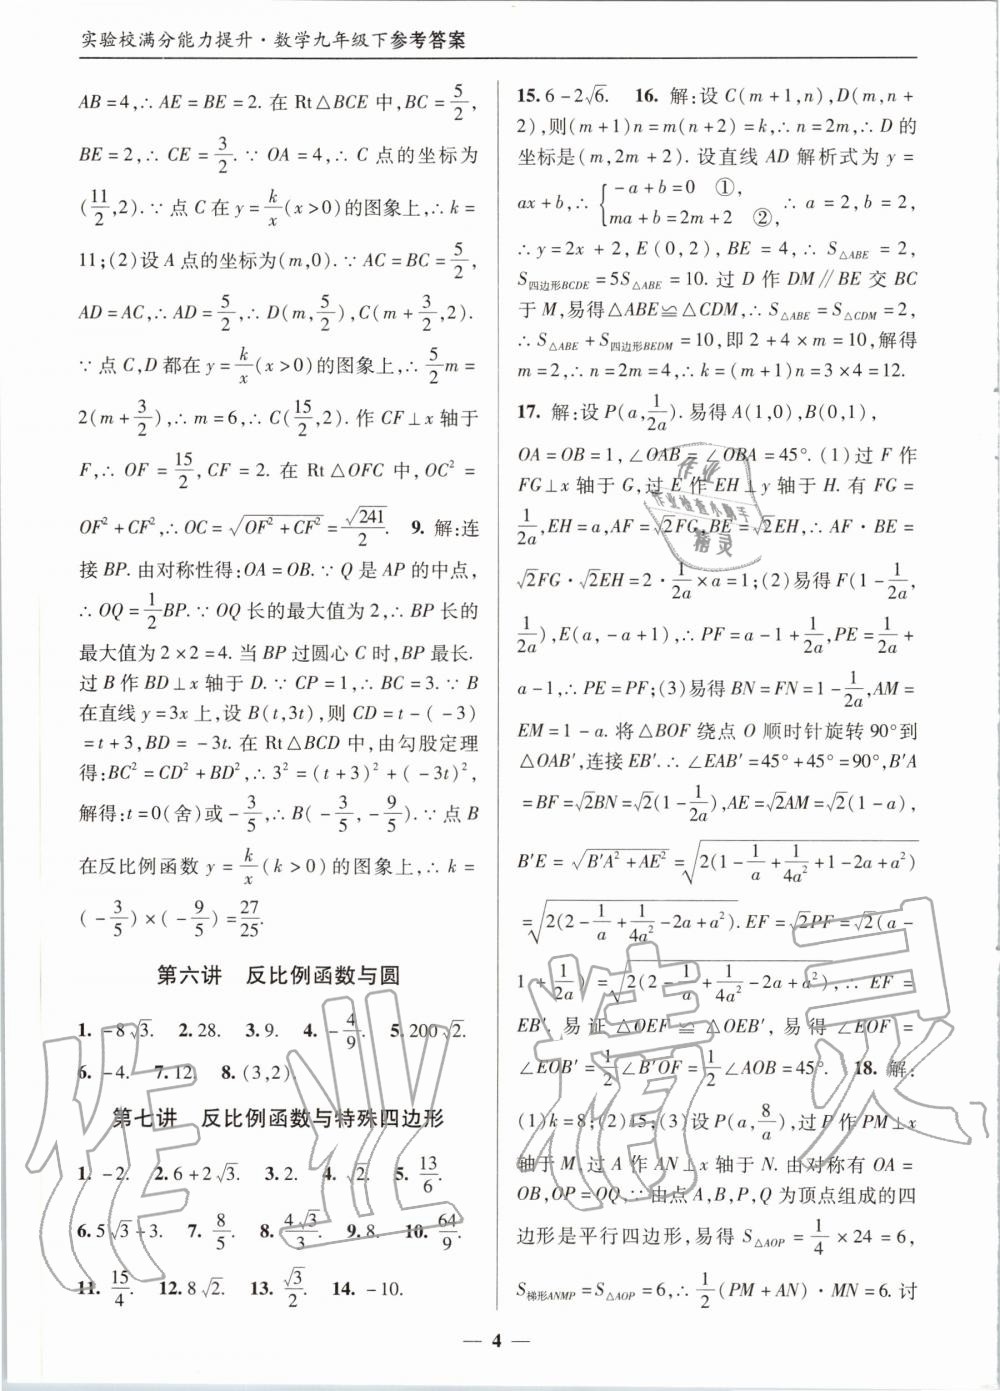 实验校满分能力提升·数学九年级下参考答案
AB=4,∴AE=BE=2. 在 Rt△BCE 中,BC=5/2,
BE=2,∴CE=3/2.∵OA=4,∴C 点的坐标为
(11/2,2).∵点 C 在 y=k/x(x>0)的图象上,∴k=
11;(2)设 A 点的坐标为(m,0).∵AC=BC=5/2,
AD=AC,∴AD=5/2,∴D(m,5/2),C(m+3/2,2).
∵点 C,D 都在 y=k/x(x>0)的图象上,∴5/2m=
2(m+3/2),∴m=6,∴C(15/2,2).作 CF⊥x 轴于
F,∴OF=15/2,CF=2. 在 Rt△OFC 中,OC²=
OF²+CF²,∴OC=√(OF²+CF²)=√241/2. 9. 解:连
接 BP.由对称性得:OA=OB.∵Q 是 AP 的中点,
∴OQ=1/2BP.∵OQ 长的最大值为 2,∴BP 长的
最大值为 2×2=4. 当 BP 过圆心 C 时,BP 最长.
过 B 作 BD⊥x 轴于 D.∵CP=1,∴BC=3.∵B
在直线 y=3x 上,设 B(t,3t),则 CD=t-(-3)
=t+3,BD=-3t. 在 Rt△BCD 中,由勾股定理
得:BC²=CD²+BD²,∴3²=(t+3)²+(-3t)²,
解得:t=0(舍)或-3/5,∴B(-3/5,-9/5).∵点 B
在反比例函数 y=k/x(k>0)的图象上,∴k=
(-3/5)×(-9/5)=27/25.
第六讲 反比例函数与圆
1. -8√3. 2. 28. 3. 9. 4. -4/9. 5. 200√2.
6. -4. 7. 12 8. (3,2).
第七讲 反比例函数与特殊四边形
1. -2. 2. 6+2√3. 3. 2. 4. √2. 5. 13/6.
6. 5√3+3. 7. 8/5. 8. 4√3/3. 9. 8. 10. 64/9.
11. 15/4. 12. 8√2. 13. √3/2. 14. -10.
15. 6-2√6. 16. 解:设 C(m+1,n),D(m,n+
2),则(m+1)n=m(n+2)=k,∴n=2m,∴D 的
坐标是(m,2m+2). 设直线 AD 解析式为 y=
ax+b,∴{-a+b=0 ①, ma+b=2m+2 ②, ∴a=2,b=2,
∴y=2x+2,E(0,2),BE=4,∴S△ABE=2,
S四边形BCDE=5S△ABE=10. 过 D 作 DM∥BE 交 BC
于 M,易得△ABE≌△CDM,∴S△ABE=S△CDM=2,
∴S△ABE+S四边形BEDM=10,即 2+4×m=10,解得
m=2,∴n=2m=4,∴k=(m+1)n=3×4=12.
17. 解:设 P(a,1/2a). 易得 A(1,0),B(0,1),
OA=OB=1,∠OAB=∠OBA=45°. (1)过 F 作
FG⊥x 轴于 G,过 E 作 EH⊥y 轴于 H. 有 FG=
1/2a,EH=a,AF=√2FG,BE=√2EH,∴AF·BE=
√2FG·√2EH=2·1/2a×a=1;(2)易得 F(1-1/2a,
1/2a),E(a,-a+1),∴PF=a-1+1/2a,PE=1/2a+
a-1,∴PE=PF;(3)易得 BN=FN=1-1/2a,AM=
EM=1-a. 将△BOF 绕点 O 顺时针旋转 90°到
△OAB′,连接 EB′.∴∠EAB′=45°+45°=90°,B′A
=BF=√2BN=√2(1-1/2a),AE=√2AM=√2(1-a),
B′E=√(B′A²+AE²)=√(2(1-1/a+1/4a²+1-2a+a²)
=√(2(2-1/a+1/4a²-2a+a²). EF=√2PF=√2(a-
1+1/2a)=√(2(2-1/a+1/4a²-2a+a²),∴EF=
EB′. 易证△OEF≌△OEB′,易得∠EOF=
∠EOB′=1/2∠B′OF=1/2∠AOB=45°. 18. 解:
(1)k=8;(2)15;(3)设 P(a,8/a),过 P 作 PM⊥x
轴于 M,过 A 作 AN⊥x 轴于 N. 由对称有 OA=
OB,OP=OQ,∵由点 A,B,P,Q 为顶点组成的四
边形是平行四边形,易得 S△AOP=1/4×24=6,
S梯形ANMP=S△AOP=6,∴1/2(PM+AN)·MN=6. 讨
作业
作业检查小助手
精灵
作业精灵
— 4 —